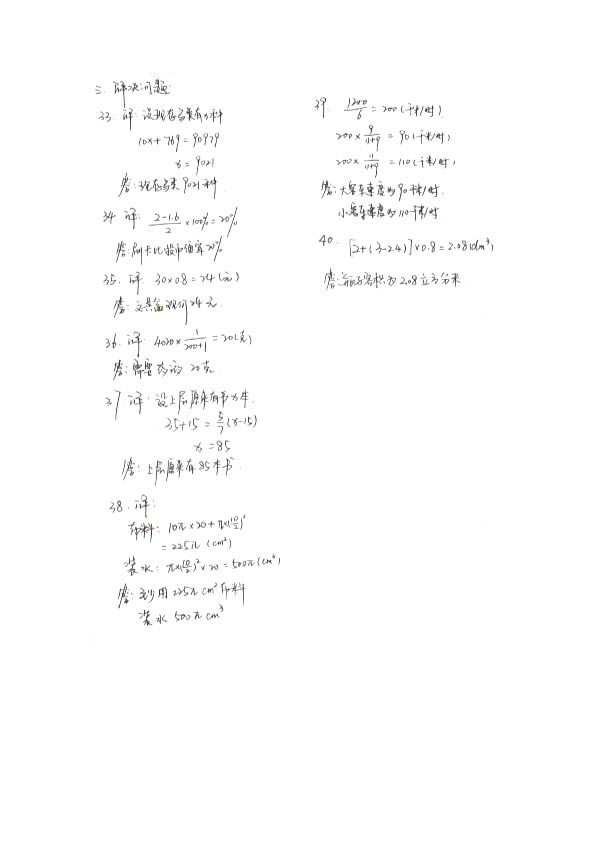 三. 解决问题
33. 解: 设现在鸟类有x种
10x+769=90979
x=9021
答: 现在鸟类9021种.
34. 解: \frac{2-1.6}{2}×100%=20%
答: 刷卡比投币便宜20%
35. 解. 30×0.8=24(元)
答: 文具盒现价24元.
36. 解: 4020×\frac{1}{200+1}=20(克)
答: 需要药 20克.
37 解: 设上层原来有书x本.
35+15=\frac{5}{7}(x-15)
x=85
答: 上层原来有85本书.
38. 解:
布料: 10π×20+π×(\frac{10}{2})²
=225π(cm²)
装水: π×(\frac{10}{2})²×20=500π(cm³)
答: 至少用225π cm²布料
装水500π cm³
39. \frac{1200}{6}=200(千米/时)
200×\frac{9}{11+9}=90(千米/时)
200×\frac{11}{11+9}=110(千米/时)
答: 大客车速度为90千米/时.
小客车速度为110千米/时
40. [2+(3-2.4)]×0.8=2.08(dm³)
答: 瓶子容积为2.08立方分米